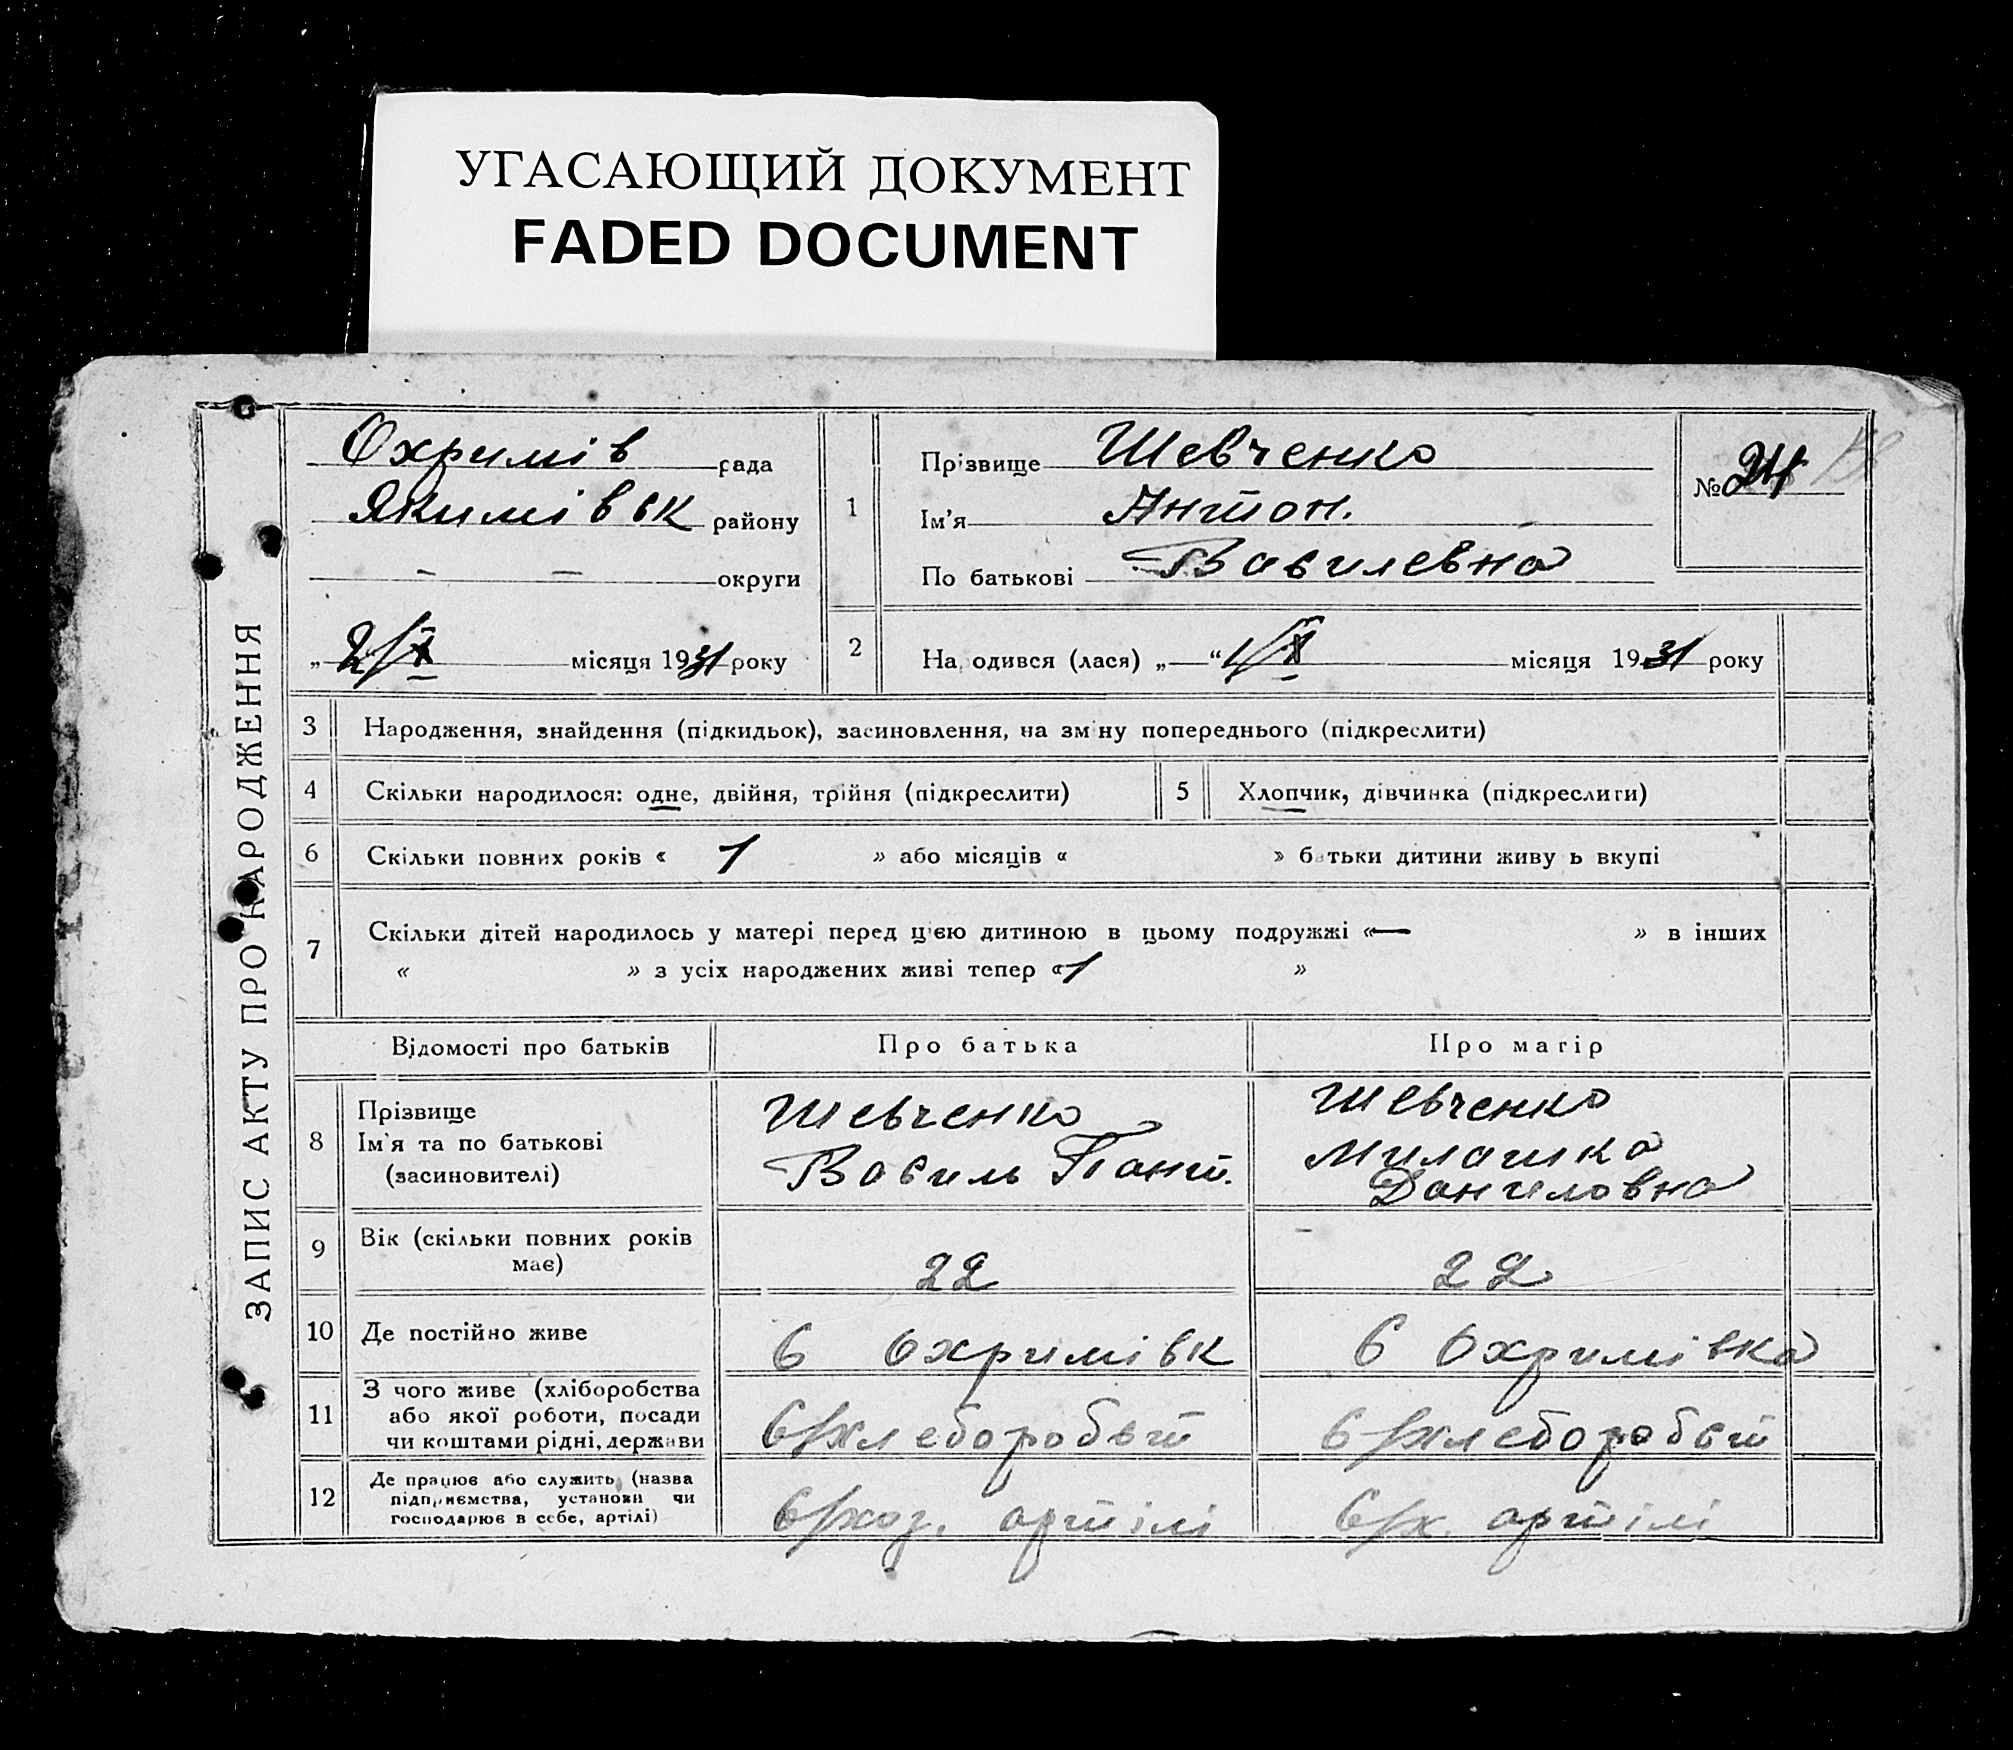 УГАСАЮЩИЙ ДОКУМЕНТ
FADED DOCUMENT
ЗАПИС АКТУ ПРО НАРОДЖЕННЯ
Охримів рада
Якимівськ району
— — округи
„ 2/X місяця 1931 року
1
Прізвище Шевченко
Ім'я Антон.
По батькові Василевна
№ 24
2 На одився (лася) „—“ 1/X місяця 1931 року
3 Народження, знайдення (підкидьок), засиновлення, на зміну попереднього (підкреслити)
4 Скільки народилося: одне, двійня, трійня (підкреслити) 5 Хлопчик, дівчинка (підкреслити)
6 Скільки повних років « 1 » або місяців « » батьки дитини живу ь вкупі
7 Скільки дітей народилось у матері перед ц'єю дитиною в цьому подружжі «— » в інших
« » з усіх народжених живі тепер «1 »
Відомості про батьків Про батька Про матір
8 Прізвище
Ім'я та по батькові
(засиновителі)
Шевченко
Василь Пант.
Шевченко
Милашка
Даниловна
9 Вік (скільки повних років
має)
22 22
10 Де постійно живе с Охримівк с Охримівка
11 З чого живе (хліборобства
або якої роботи, посади
чи коштами рідні, держави
с/хлеборобст с/хлеборобст
12 Де працює або служить (назва
підприємства, установи чи
господарює в себе, артілі)
с/хоз. артілі с/х. артілі